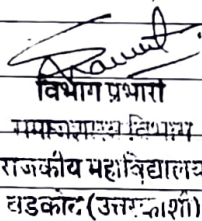 विभाग प्रभारी
समाजशास्त्र विभाग
राजकीय महाविद्यालय
बड़कोट (उत्तरकाशी)